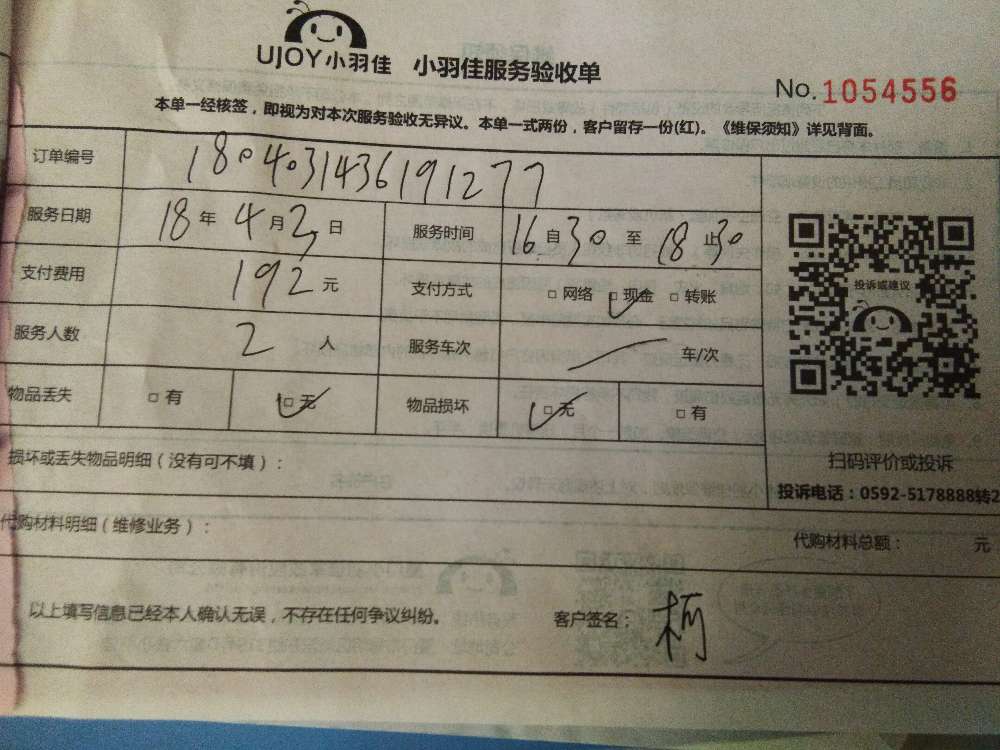 UJOY小羽佳 小羽佳服务验收单
No. 1054556
本单一经核签，即视为对本次服务验收无异议。本单一式两份，客户留存一份(红)。《维保须知》详见背面。
订单编号 1804031436191277
服务日期 18年4月2日 服务时间 16自30至18止30
支付费用 192元 支付方式 □网络 □现金 □转账
投诉或建议
服务人数 2人 服务车次 车/次
物品丢失 □有 □无 物品损坏 □无 □有
损坏或丢失物品明细（没有可不填）：
扫码评价或投诉
投诉电话：0592-5178888转2
代购材料明细（维修业务）：
代购材料总额： 元
以上填写信息已经本人确认无误，不存在任何争议纠纷。 客户签名：柯